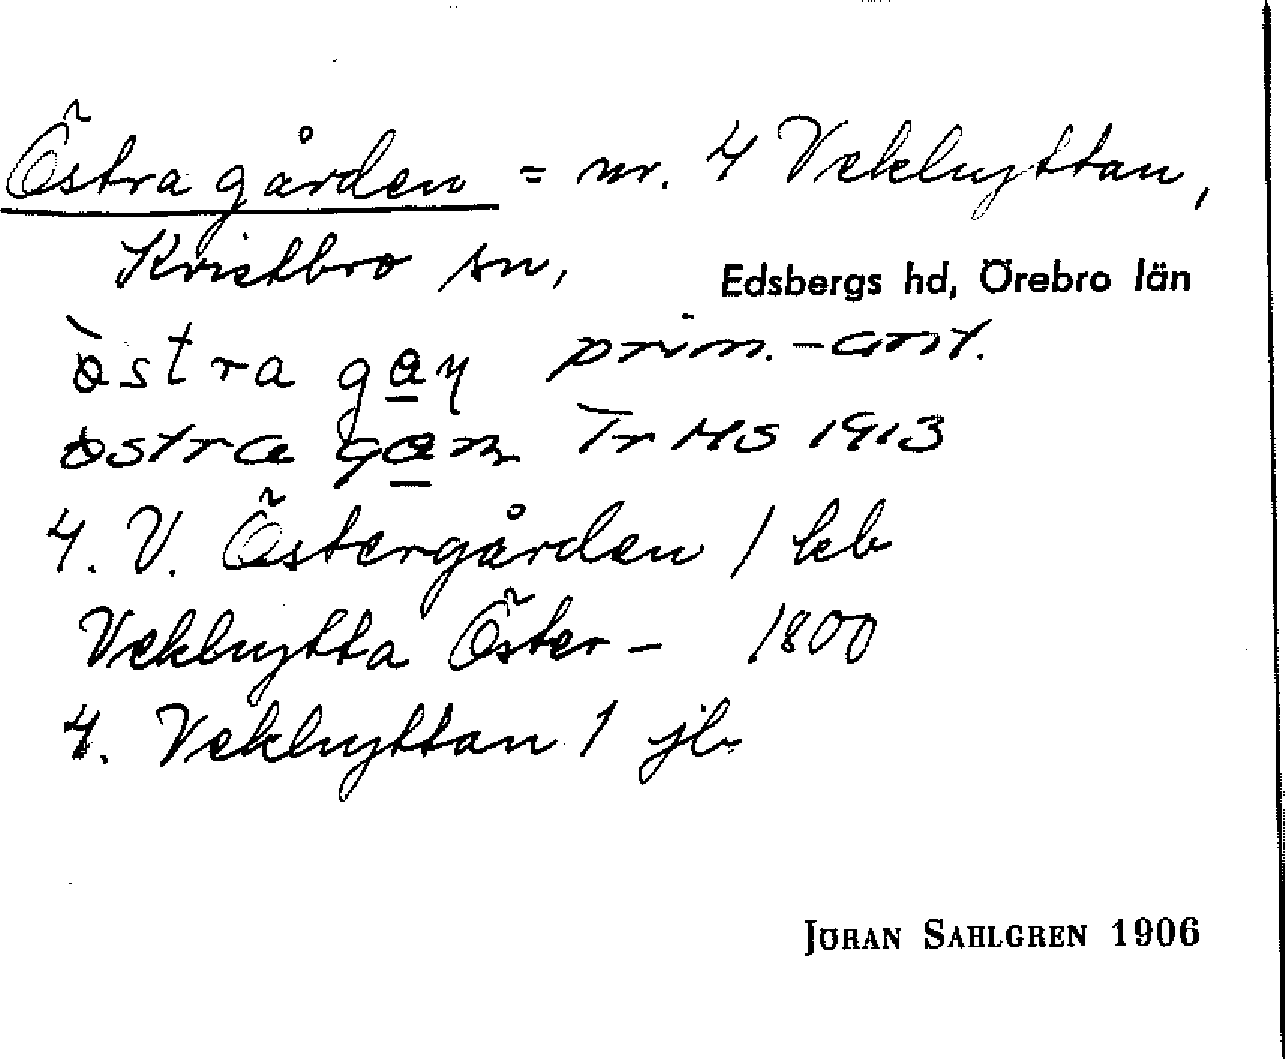 Östra gården = nr. 4 Vekhyttan,
Kvistbro sn, Edsbergs hd, Örebro län
östra gaɳ prim.-ant.
östra gan Tr HS 1913
4. V. Östergården / kb
Vekhytta Öster - 1800
4. Vekhyttan 1 jb
JÖRAN SAHLGREN 1906